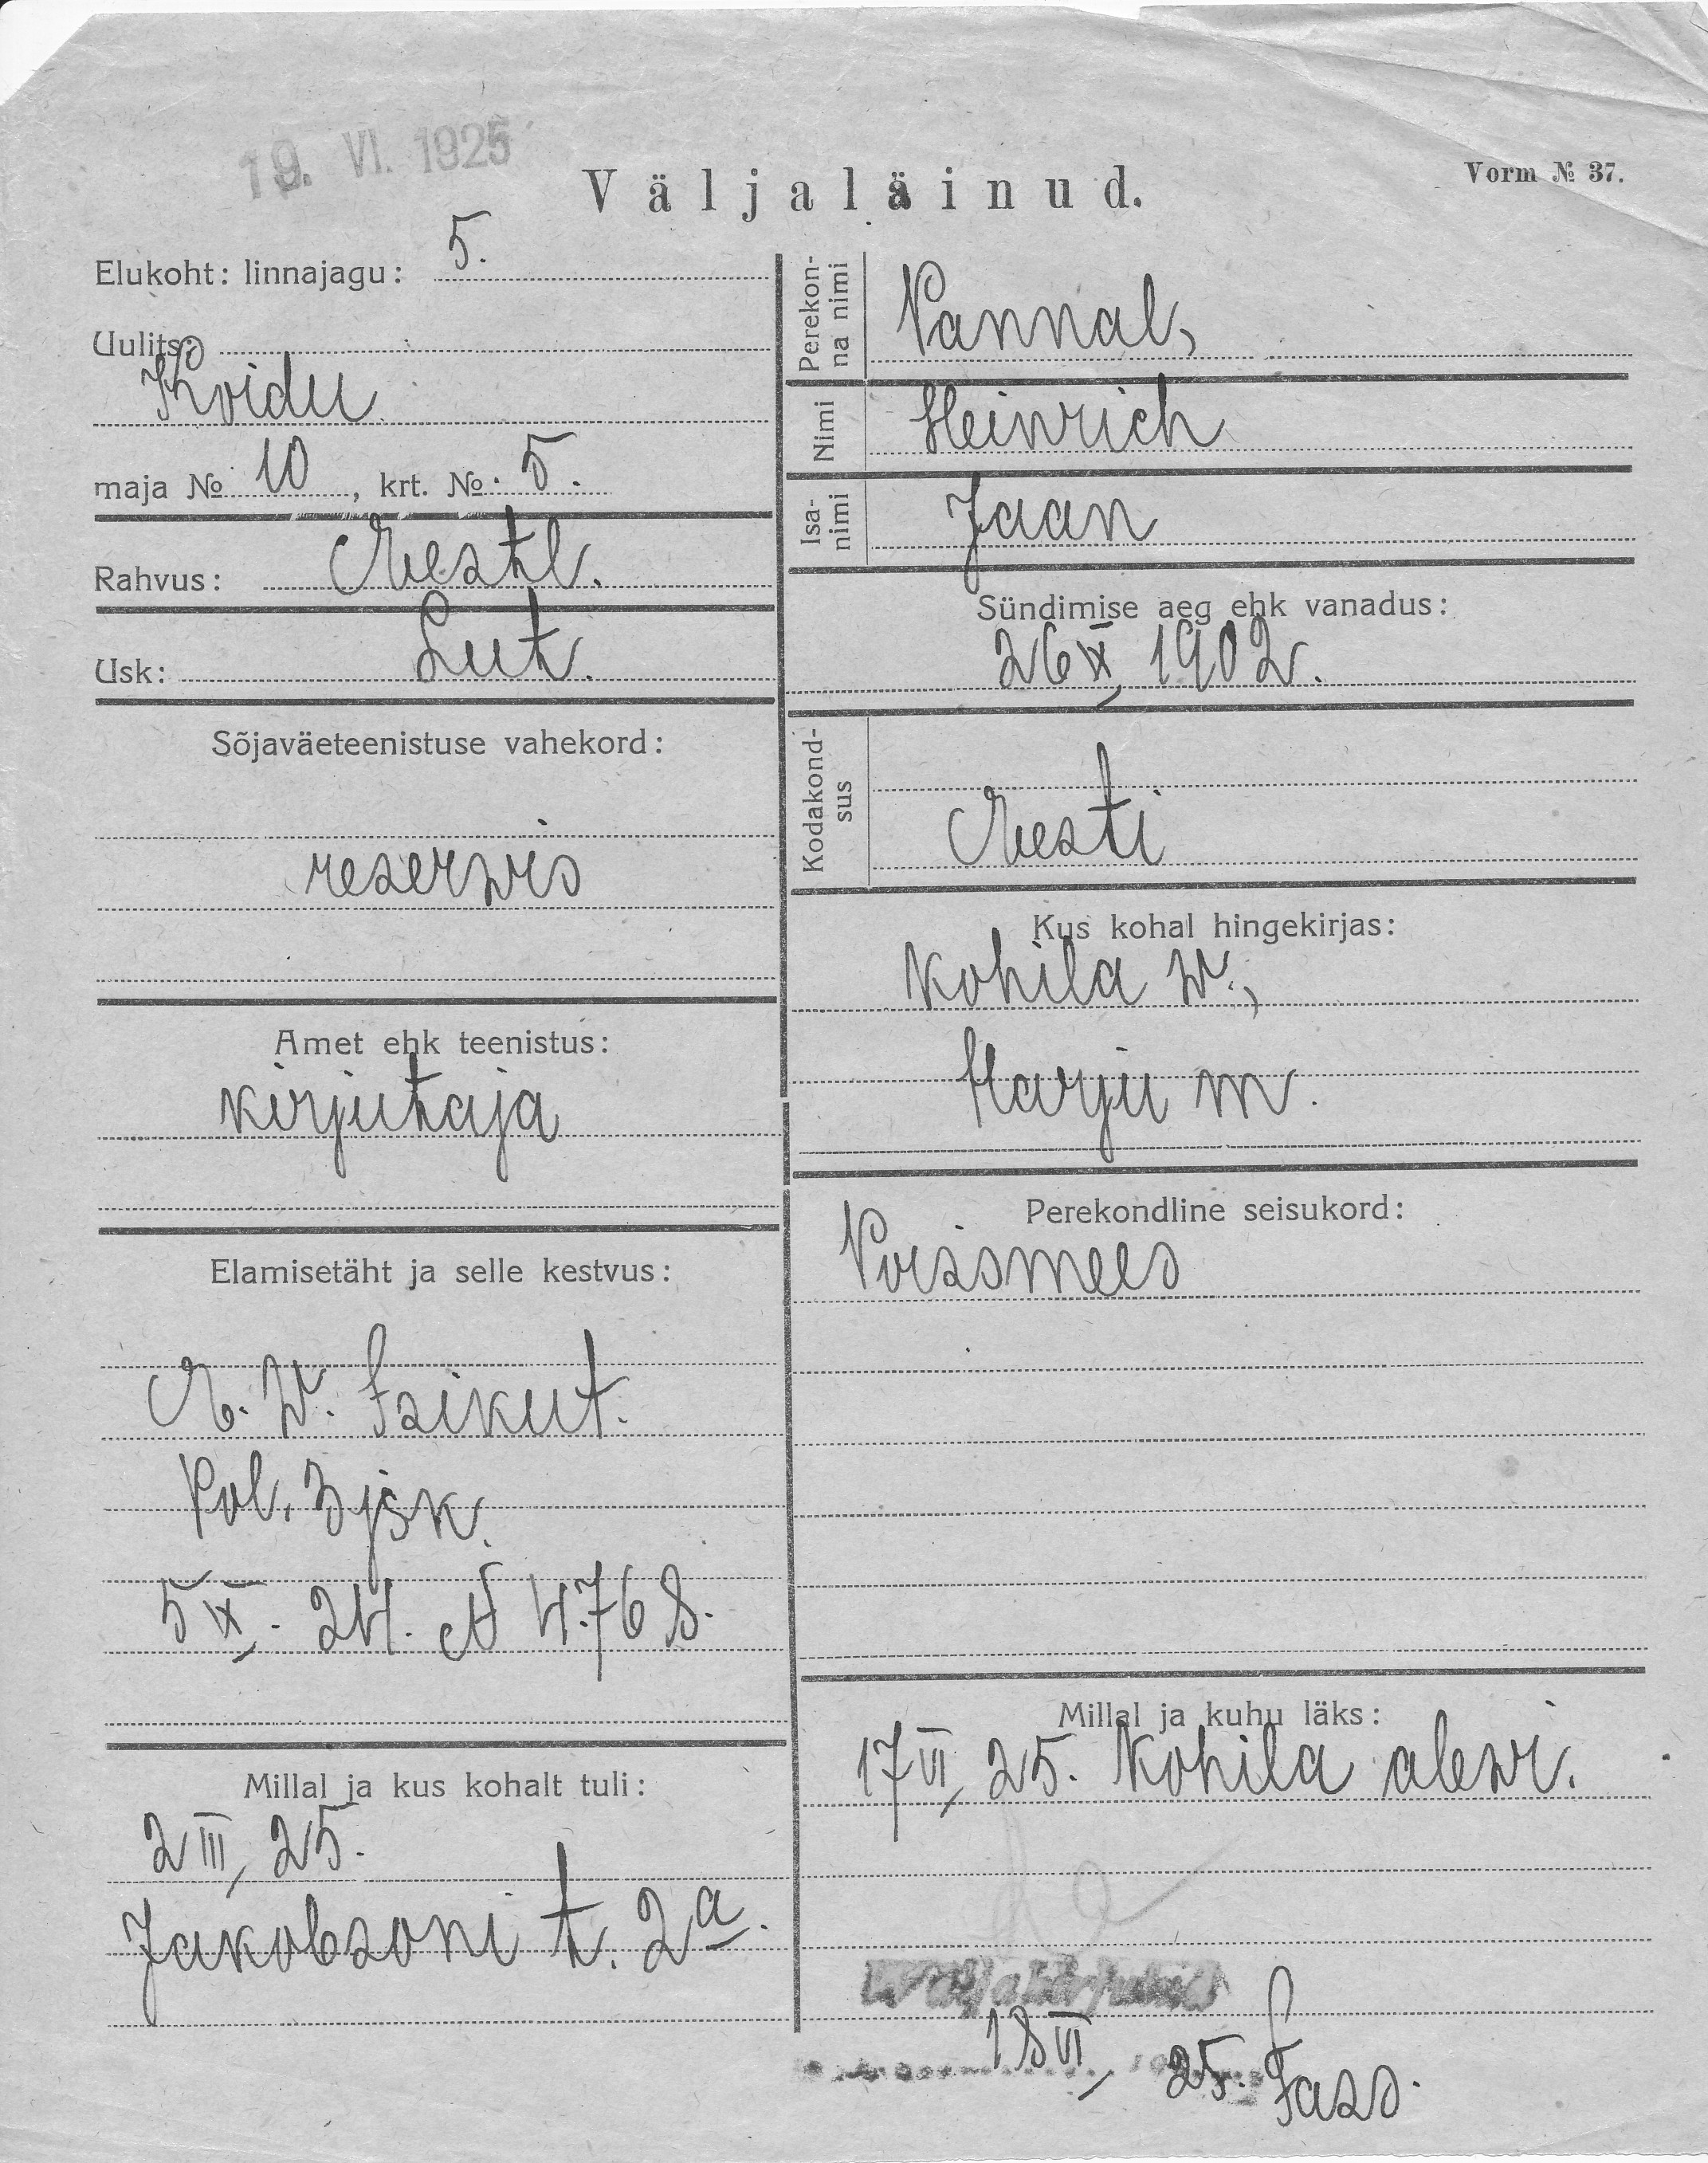 19. VI. 1925
Väljaläinud.
Vorm № 37.
Elukoht: linnajagu: 5.
Uulits:
Koidu
maja № 10, krt. № 5.
Rahvus: Eestl.
Usk: Lut.
Sõjaväeteenistuse vahekord:
reserwis
Amet ehk teenistus:
kirjutaja
Elamisetäht ja selle kestvus:
E. W. Isikut.
Pol. 3 jsk.
5 IX. 24. № 4768.
Millal ja kus kohalt tuli:
2 III 25.
Jakobsoni t. 2a.
Perekonna nimi Vannal,
Nimi Heinrich
Isanimi Jaan
Sündimise aeg ehk vanadus:
26 IX 1902.
Kodakondsus
Eesti
Kus kohal hingekirjas:
Kohila w.,
Harju m.
Perekondline seisukord:
Poissmees
Millal ja kuhu läks:
17 VI 25. Kohila alewi.
Wäljakirjutatud
18 VI 25.